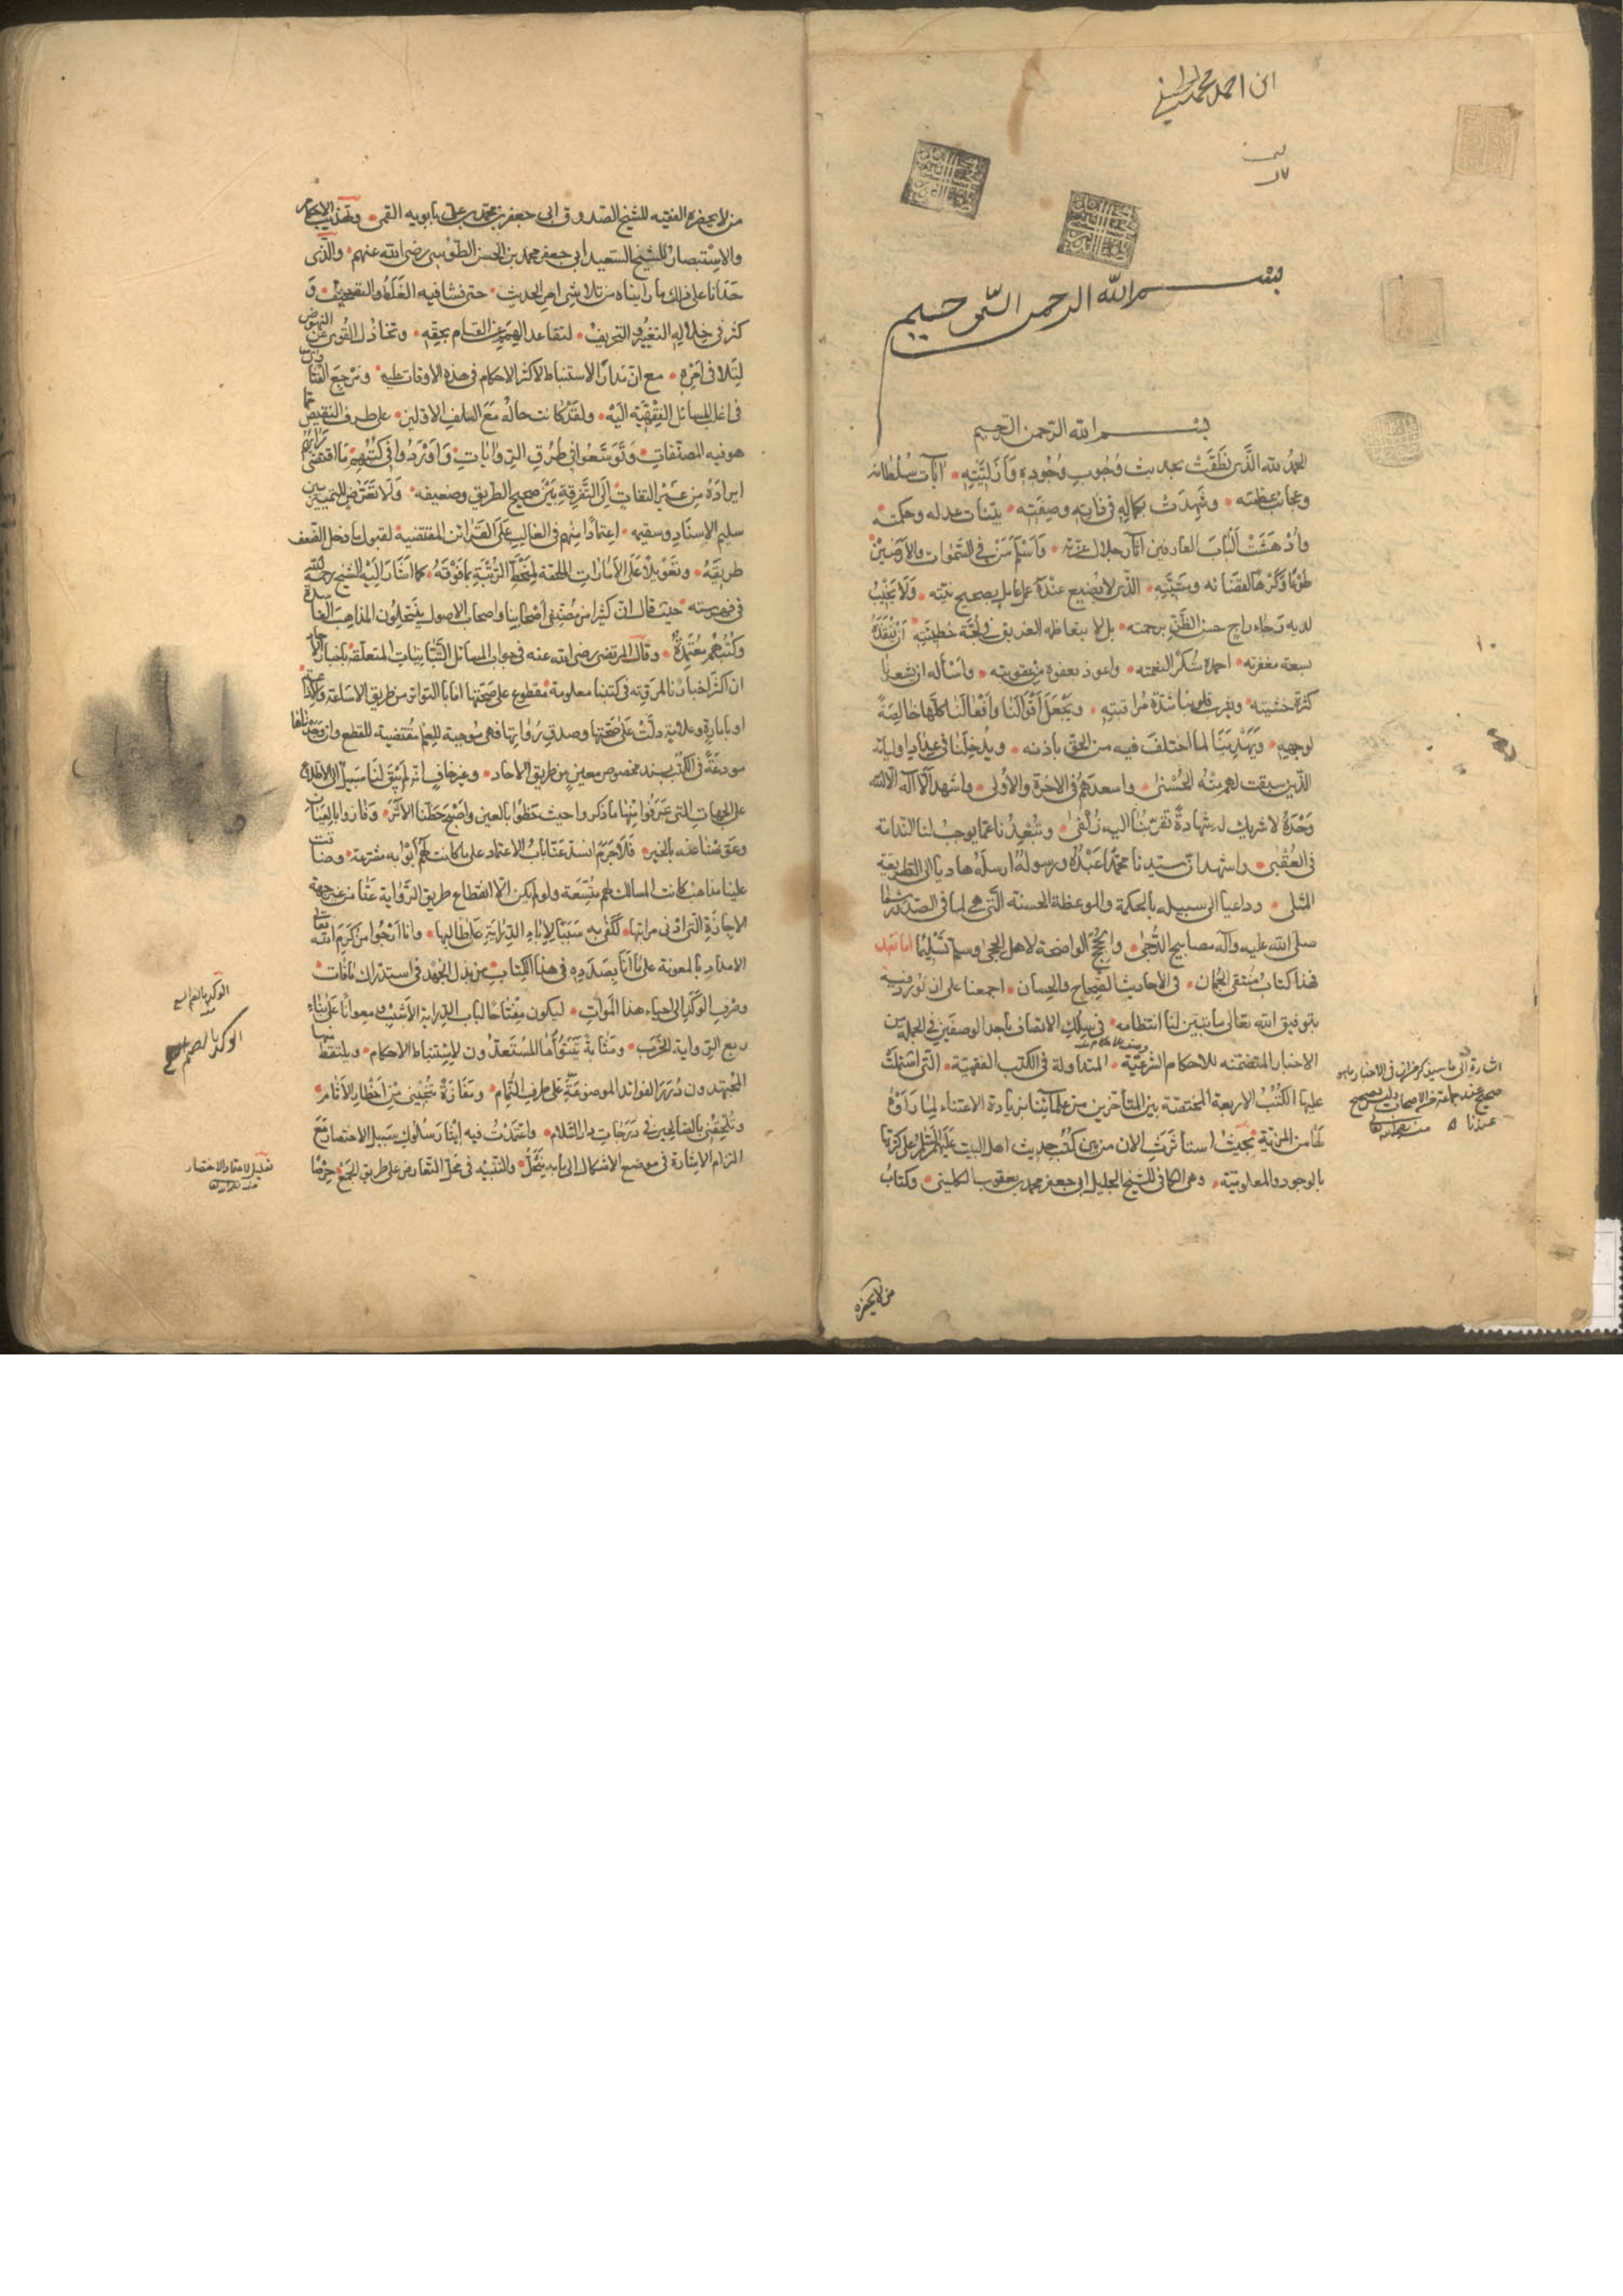 بسم الله الرحمن الرحيم
بسم الله الرحمن الرحيم
الحمد لله الذي نطقت بحديث وجوب وجوده وأزليته آيات سلطانه
وعجائب عظمته وشهدت بكماله في ذاته وصفته بينات عدله وحكمته
وأدهشت ألباب العارفين آثار جلال عزته واستسلم من في السموات والأرضين
طوعا وكرها لقضائه ومشيته الذي لا يضيع عنده عمل عامل بصحيح نيته ولا يخيب
لديه رجاء راج حسن الظن برحمته بل لا يتعاظمه الغريق في لجة خطيئته أن ينقذه
بسعة مغفرته احمده شكرا لنعمته واعوذ بعفوه من عقوبته واسأله ان يشعرنا
كثرة خشيته ويقرب قلوبنا شدة مراقبته ويجعل أقوالنا وأفعالنا كلها خالصة
لوجهه ويهدينا لما اختلف فيه من الحق باذنه ويدخلنا في عداد اوليائه
الذين سبقت لهم منه الحسنى واسعدهم في الاخرة والأولى واشهد ألا آله الا الله
وحده لا شريك له شهادة تقربنا اليه زلفى وتبعدنا عما يوجب لنا الندامة
في العقبى واشهد ان سيدنا محمدا عبده ورسوله ارسله هاديا الى الطريقة
المثلى وداعيا الى سبيله بالحكمة والموعظة الحسنة التي هي لما في الصدور شفا
صلى الله عليه وآله مصابيح الدجى والحجج الواضحة لاهل الحجى وسلم تسليما اما بعد
فهذا كتاب منتقى الجمان في الأحاديث الصحاح والحسان اجمعنا على ان نورد فيه
بتوفيق الله تعالى ما تبين لنا انتظامه في سلك الاتصاف باحد الوصفين في الجملة من
الاخبار المتضمنه للاحكام الشرعية المتداولة في الكتب الفقهية التي اشتملت
عليها الكتب الاربعة المختصة بين المتأخرين من علمائنا بزيادة الاعتناء لما رأوه
لها من المزية بحيث استأثرت الان من بين كتب حديث اهل البيت عليهم السلام على كثرتها
بالوجود والمعلومية وهي الكافي للشيخ الجليل ابي جعفر محمد بن يعقوب الكليني وكتاب
من لا يحضره
من لا يحضره الفقيه للشيخ الصدوق ابي جعفر محمد بن علي بن بابويه القمي وتهذيب الاحكام
والاستبصار للشيخ السعيد أبي جعفر محمد بن الحسن الطوسي رضي الله عنهم والذي
حدانا على ذلك ما رايناه من تلاشي امر الحديث حتى فشا فيه الغلط والتصحيف و
كثر في خلاله التغيير والتحريف لتقاعد الهمم عن القيام بحقه وتخاذل القوى عن النهوض
لتلافي امره مع ان مدار الاستنباط لاكثر الاحكام في هذه الاوقات عليه ومرجع الفتاوى
في اغلب المسائل الفقهية اليه ولقد كانت حاله مع السلف الاولين على طرف النقيض مما
هو فيه المصنفات وتوسعوا في طرق الروايات وأوردوا في كتبهم ما اقتضى رأيهم
ايراده من غير التفات إلى التفرقة بين صحيح الطريق وضعيفه ولا تعرض للتمييز بين
سليم الاسناد وسقيمه اعتمادا منهم في الغالب على القرائن المقتضية لقبول ما دخل الضعف
طريقه وتعويلا على الأمارات الملحقة لمنحط الرتبة بما فوقه كما اشار اليه الشيخ رحمه الله
في فهرسته حيث قال ان كثيرا من مصنفي أصحابنا واصحاب الاصول ينتحلون المذاهب الفاسدة
وكتبهم معتمدة وقال المرتضى رضي الله عنه في جواب المسائل التبانيات المتعلقة باخبار الآحاد
ان اكثر اخبارنا المروية في كتبنا معلومة مقطوع على صحتها اما بالتواتر من طريق الاشاعة والاذاعة
او بامارة وعلامة دلت على صحتها وصدق رواتها فهي موجبة للعلم مقتضية للقطع وان وجدناها
مودعة في الكتب بسند مخصوص معين من طريق الاحاد وغير خاف انه لم يبق لنا سبيل الى الاطلاع
على الجهات التي عرفوا منها ما ذكروا حيث حظوا بالعين وأصبح حظنا الأثر وفازوا بالعيان
وعوضنا عنه بالخبر فلا جرم انسد عنا باب الاعتماد على ما كانت لهم أبوابه مشرعة وضاقت
علينا مذاهب كانت المسالك لهم متسعة ولو لم يكن الا انقطاع طريق الرواية عنا من غير جهة
الاجازة التي ادنى مراتبها لكفى به سببا لإباء الدراية على طالبها وانا أرجوا من كرم الله تعالى
الامداد بالمعونة على ما أنا بصدده في هذا الكتاب من بذل الجهد في استدراك ما فات
وصرف الوكد الى احياء هذا الموات ليكون مفتاحا لباب الدراية الأشب ومعوانا على بناء
ربع الرواية الخرب ومثابة يتبوأها المستعدون لاستنباط الاحكام ويلتقط منها
المجتهدون درر الفوائد الموضوعة على طرف الثمام ومفازة تنجيني من أخطار الآثام
وتلحقني بالصالحين في درجات دار السلام واعتمدت فيه إيثار سلوك سبيل الاختصار مع
التزام الإشارة في موضع الاشكال الى ما به ينحل والتنبيه في محل التعارض على طريق الجمع حرصا
الوكد بالضم السعي